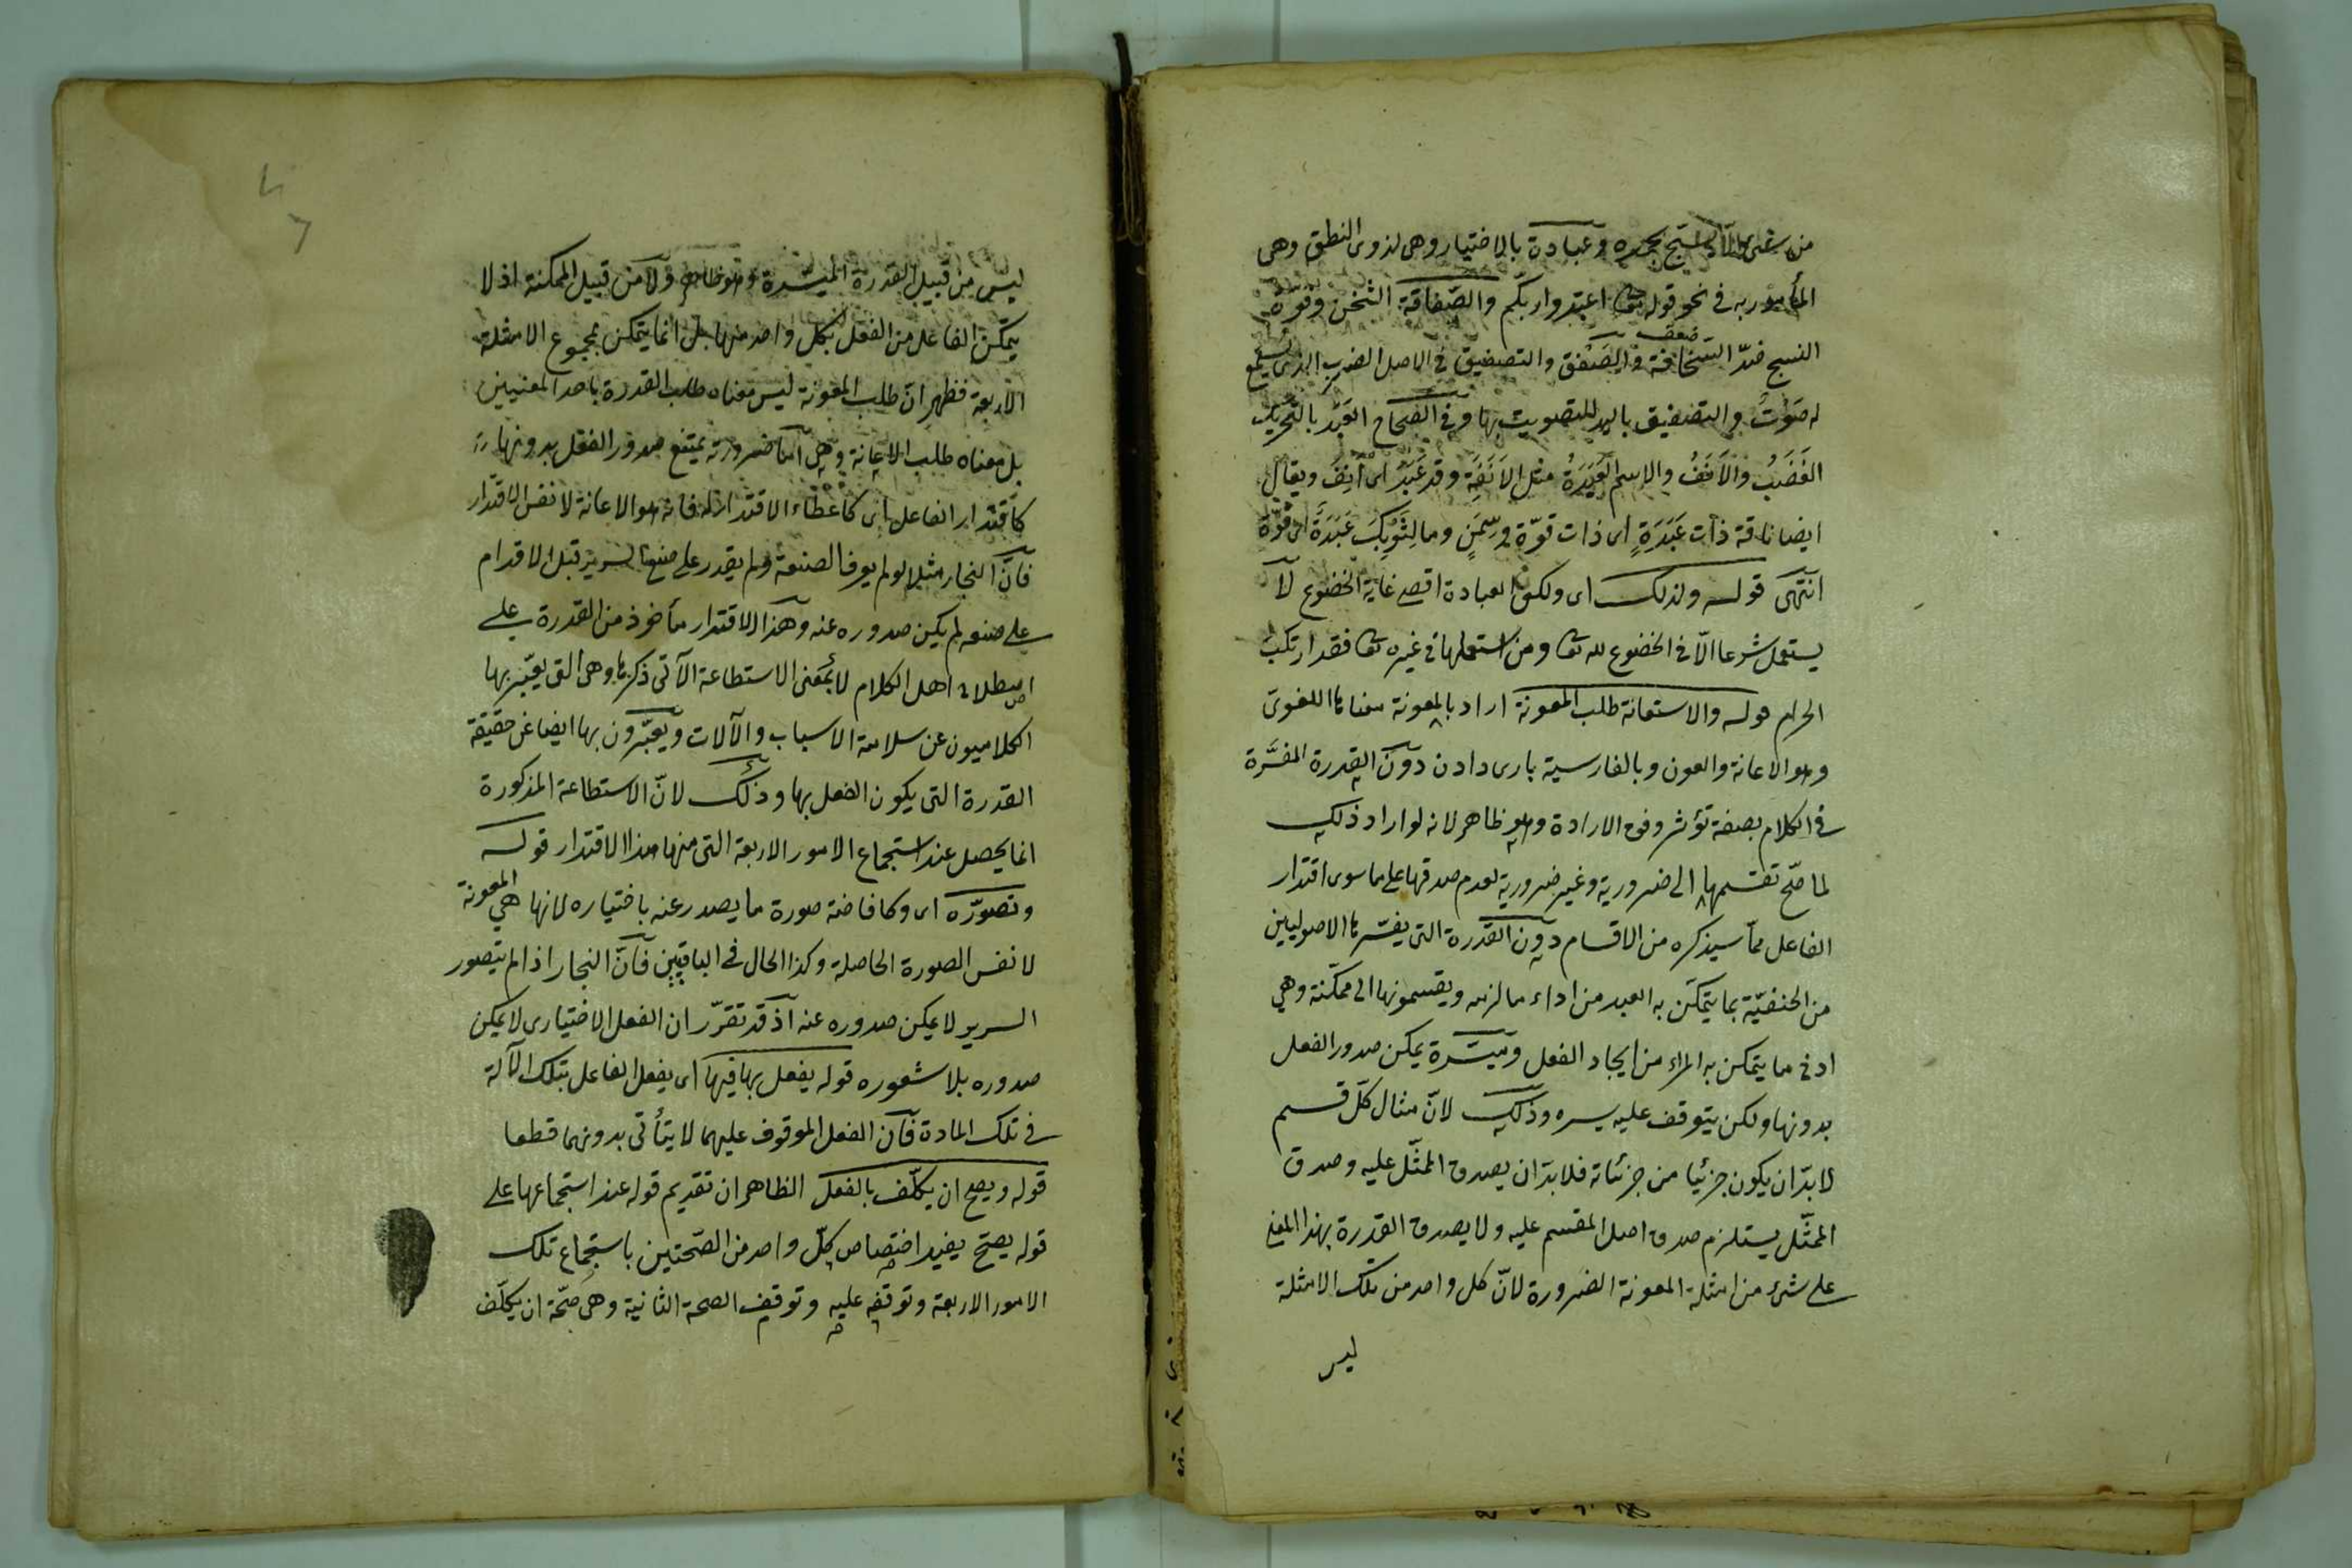 من شئ الا يسبح بحمده وعبادة بالاختيار وهى لذوى النطق وهى
المأمور به فى نحو قوله تعا اعبدوا ربكم والصفاقة الثخن وقوة
ضعف
النسج ضدّ السخافة والصفق والتصفيق فى الاصل الضرب الذى يسمع
له صَوْتٌ والتصفيق باليد للتصويت بها وفى الصحاح العَبَد بالتحريك
الغَضَبُ والاَنَفُ والاسم العَبَدَةُ مثل الاَنَفَةِ وقد عَبِدَ اى اَنِفَ ويقال
ايضا ناقة ذات عَبَدَةٍ اى ذات قوّة وسِمَنٍ وما لِثَوْبِكَ عَبَدَةٌ اى قوّة
انتهى قوله ولذلك اى ولكون العبادة اقصى غاية الخضوع لا
يستعمل شرعا الّا فى الخضوع لله تعا ومن استعملها فى غيره تعا فقد ارتكب
الحرام قوله والاستعانة طلب المعونة اراد بالمعونة معناها اللغوى
وهو الاعانة والعون وبالفارسية يارى دادن دون القدرة المفسَّرة
فى الكلام بصفة تؤثر وفق الارادة وهو ظاهر لانه لو اراد ذلك
لما صّح تقسيمها الى ضرورية وغير ضرورية لعدم صدقها على ما سوى اقتدار
الفاعل ممّا سيذكره من الاقسام دون القدرة التى يفسّرها الاصوليين
من الحنفيّة بما يتمكّن به العبد من اداء ما لزمه ويقسمونها الى ممكّنة وهى
ادنى ما يتمكن به المراء من ايجاد الفعل وميسّرة يمكن صدور الفعل
بدونها ولكن يتوقف عليه يسره وذلك لانّ مثال كلّ قسم
لا بدّ ان يكون جزئيا من جزئياته فلا بدّ ان يصدق الممثّل عليه وصدق
الممثّل يستلزم صدق اصل المقسم عليه ولا يصدق القدرة بهذا المعنى
على شئ من امثلة المعونة الضرورة لانّ كل واحد من تلك الامثلة
ليس
ليس من قبيل القدرة الميسّرة وهو ظاهر ولا من قبيل الممكنة اذ لا
يتمكّن الفاعل من الفعل بكل واحد منها بل انما يتمكن بمجموع الامثلة
الاربعة فظهر انّ طلب المعونة ليس معناه طلب القدرة باحد المعنيين
بل معناه طلب الاعانة وهى اما ضرورية يمتنع صدور الفعل بدونها
كاقتدار الفاعل اى كاعطاء الاقتدار له فانه هو الاعانة لا نفس الاقتدار
فانّ النجار مثلا لو لم يعرف الصنعة ولم يقدر على صنع السرير قبل الاقدام
على صنعه لم يكن صدوره عنه وهذا الاقتدار مأخوذ من القدرة على
اصطلاح اهل الكلام لا بمعنى الاستطاعة الآتى ذكرها وهى التى يعبّر بها
الكلاميون عن سلامة الاسباب والآلات ويعبّرون بها ايضا عن حقيقة
القدرة التى يكون الفعل بها وذلك لانّ الاستطاعة المذكورة
انما يحصل عند استجماع الامور الاربعة التى منها هذا الاقتدار قوله
وتصوّره اى وكافاضة صورة ما يصدر عنه باختياره لانها هى المعونة
لا نفس الصورة الحاصلة وكذا الحال فى الباقيين فانّ النجار اذا لم يتصور
السرير لا يمكن صدوره عنه اذ قد تقرّر ان الفعل الاختيارى لا يمكن
صدوره بلا شعوره قوله يفعل بها فيها اى يفعل الفاعل بتلك الآلة
فى تلك المادة فانّ الفعل الموقوف عليهما لا يتأتى بدونهما قطعا
قوله ويصح ان يكلّف بالفعل الظاهر ان تقديم قوله عند استجماعها على
قوله يصحّ يفيد اختصاص كلّ واحد من الصّحتين باستجماع تلك
الامور الاربعة وتوقفه عليه وتوقف الصحة الثانية وهى صّحة ان يكلّف